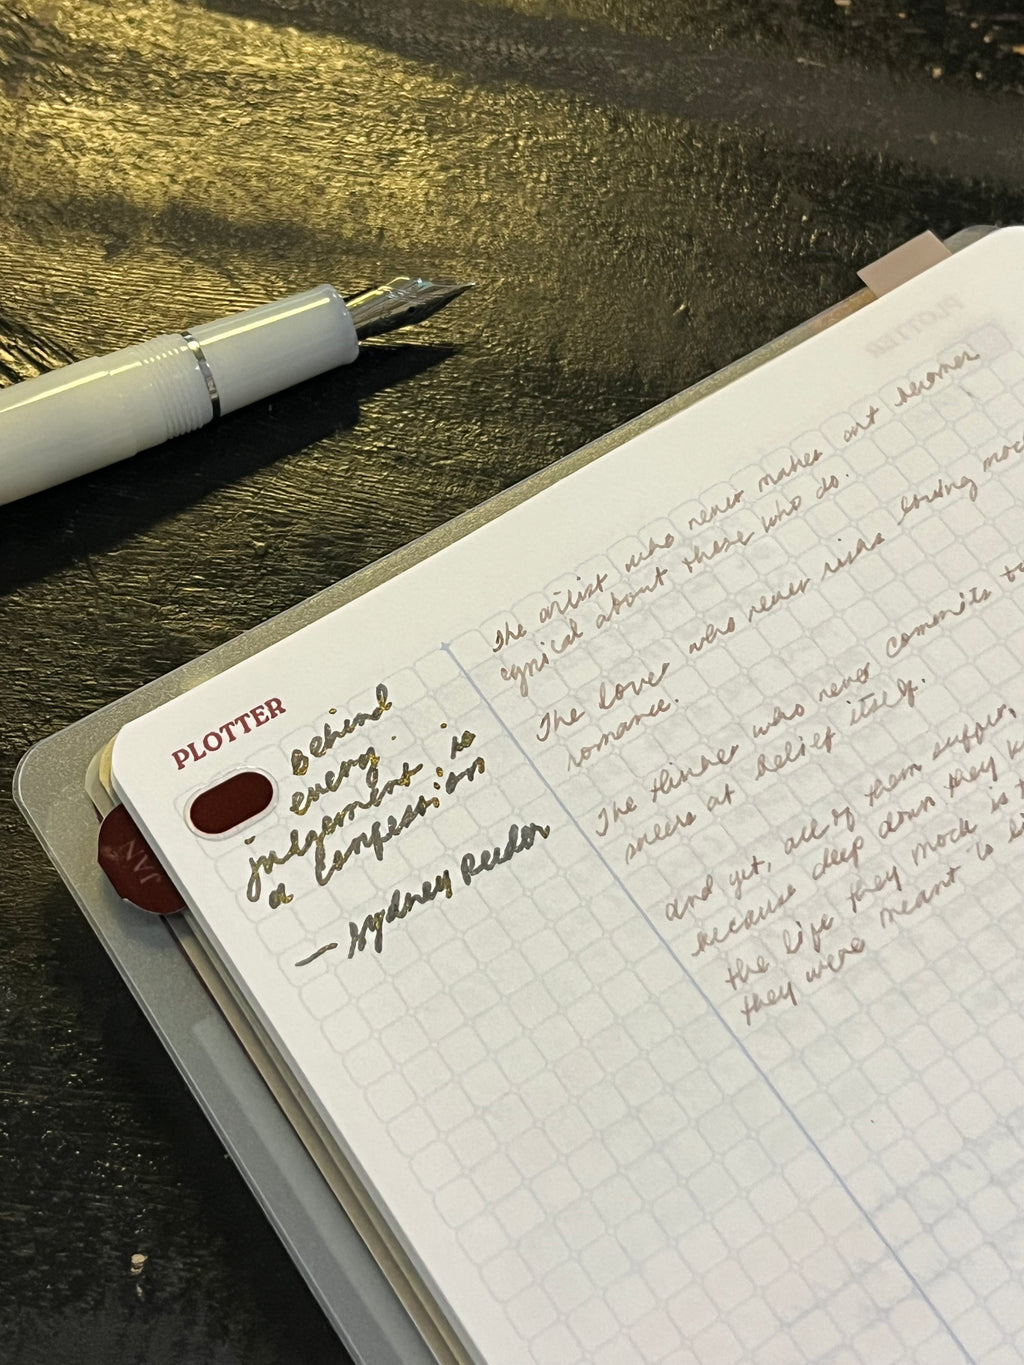 PLOTTER
Behind
every
judgement is
a confession
— Sydney
JAN
PLOTTER
The artist who never makes art becomes
cynical about those who do.
The lover who never risks loving
romance.
The thinker who never commits to
sneers at belief itself.
and yet, all of them suffer,
because deep down they
the life they mock is
they were meant to